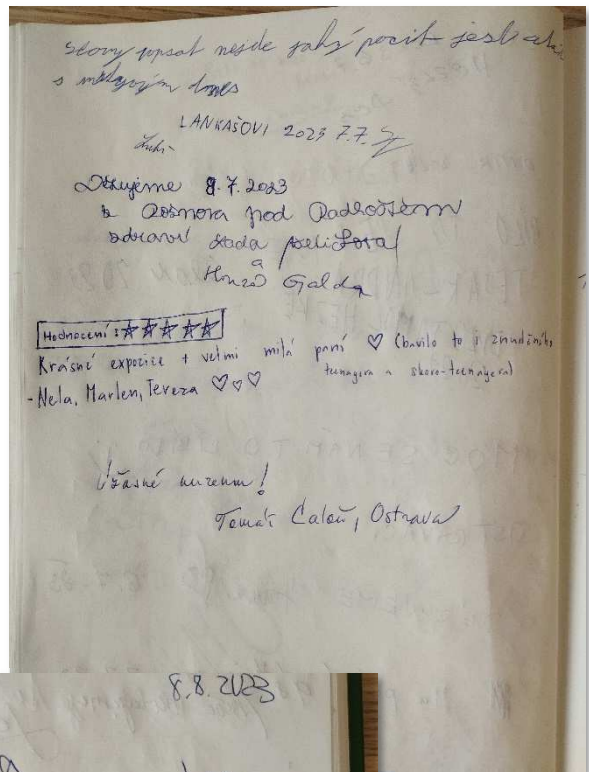 Slovy popsat nejde jaký pocit jest
s dnes
LANKAŠOVI 2023 7.7.
Děkujeme 8.7.2023
z Rožnova pod Radhoštěm
zdraví Lada
a
Honza Galda
Hodnocení: ☆☆☆☆☆
Krásné expozice + velmi milá paní ♡ (bavilo to i znuděného
teenagera a skoro-teenagera)
- Nela, Marlen, Tereza ♡♡♡
Úžasné muzeum!
Tomáš Caloň, Ostrava
8.8.2023